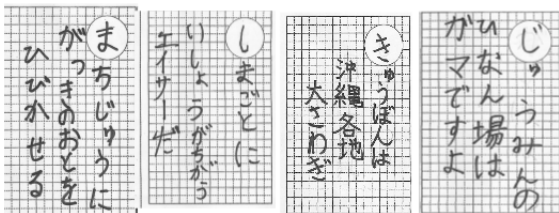 まちじゅうに
がっきのおとを
ひびかせる
しまごとに
いしょうがちがう
エイサーだ
きゅうぼんは
沖縄各地
大さわぎ
じゅうみんの
ひなん場は
ガマですよ